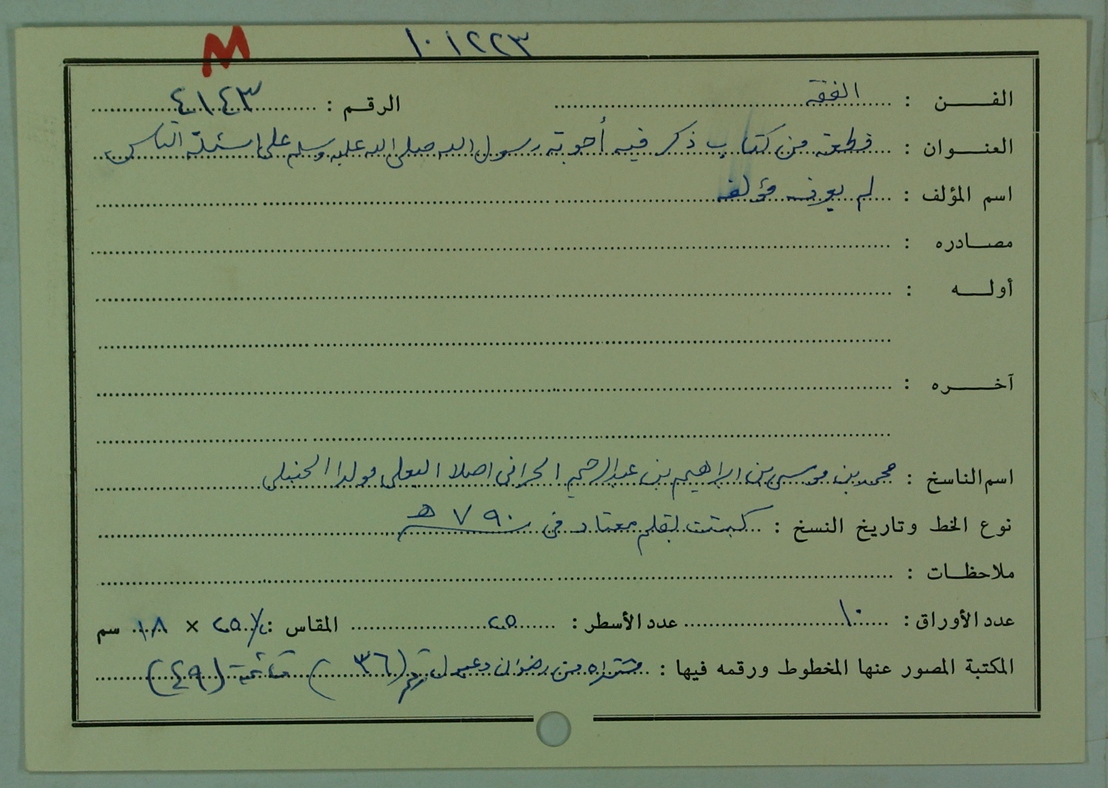 M ١٠١٢٢٣
الفن : الفقه الرقم : ٤١٤٣
العنوان : قطعة من كتاب ذكر فيه أجوبة رسول الله صلى الله عليه وسلم على اسئلة الناس
اسم المؤلف : لم يعرف مؤلفه
مصادره :
أوله :
آخره :
اسم الناسخ : محمد بن موسى بن ابراهيم بن عبدالرحيم الحرانى اصلا البعلى مولدا الحنبلى
نوع الخط وتاريخ النسخ : كتبت بقلم معتاد فى ٧٩٠ هـ
ملاحظات :
عدد الأوراق : ١٠ عدد الأسطر : ٢٥ المقاس : × ١٨ سم
المكتبة المصور عنها المخطوط ورقمه فيها : مشتراه من رضوان دعبول رقم (٣٦) قائمة (٤٩)